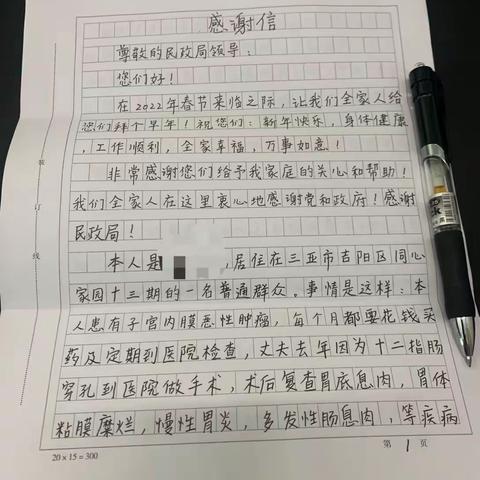 感谢信
尊敬的民政局领导:
您们好!
在2022年春节来临之际,让我们全家人给
您们拜个早年!祝您们:新年快乐,身体健康
,工作顺利,全家幸福,万事如意!
非常感谢您们给予我家庭的关心和帮助!
我们全家人在这里衷心地感谢党和政府!感谢
民政局!
本人是 ,居住在三亚市吉阳区同心
家园十三期的一名普通群众。事情是这样:本
人患有子宫内膜恶性肿瘤,每个月都要花钱买
药及定期到医院检查,丈夫去年因为十二指肠
穿孔到医院做手术,术后复查胃底息肉,胃体
粘膜糜烂,慢性胃炎,多发性肠息肉,等疾病
装
订
线
20×15=300
第 1 页